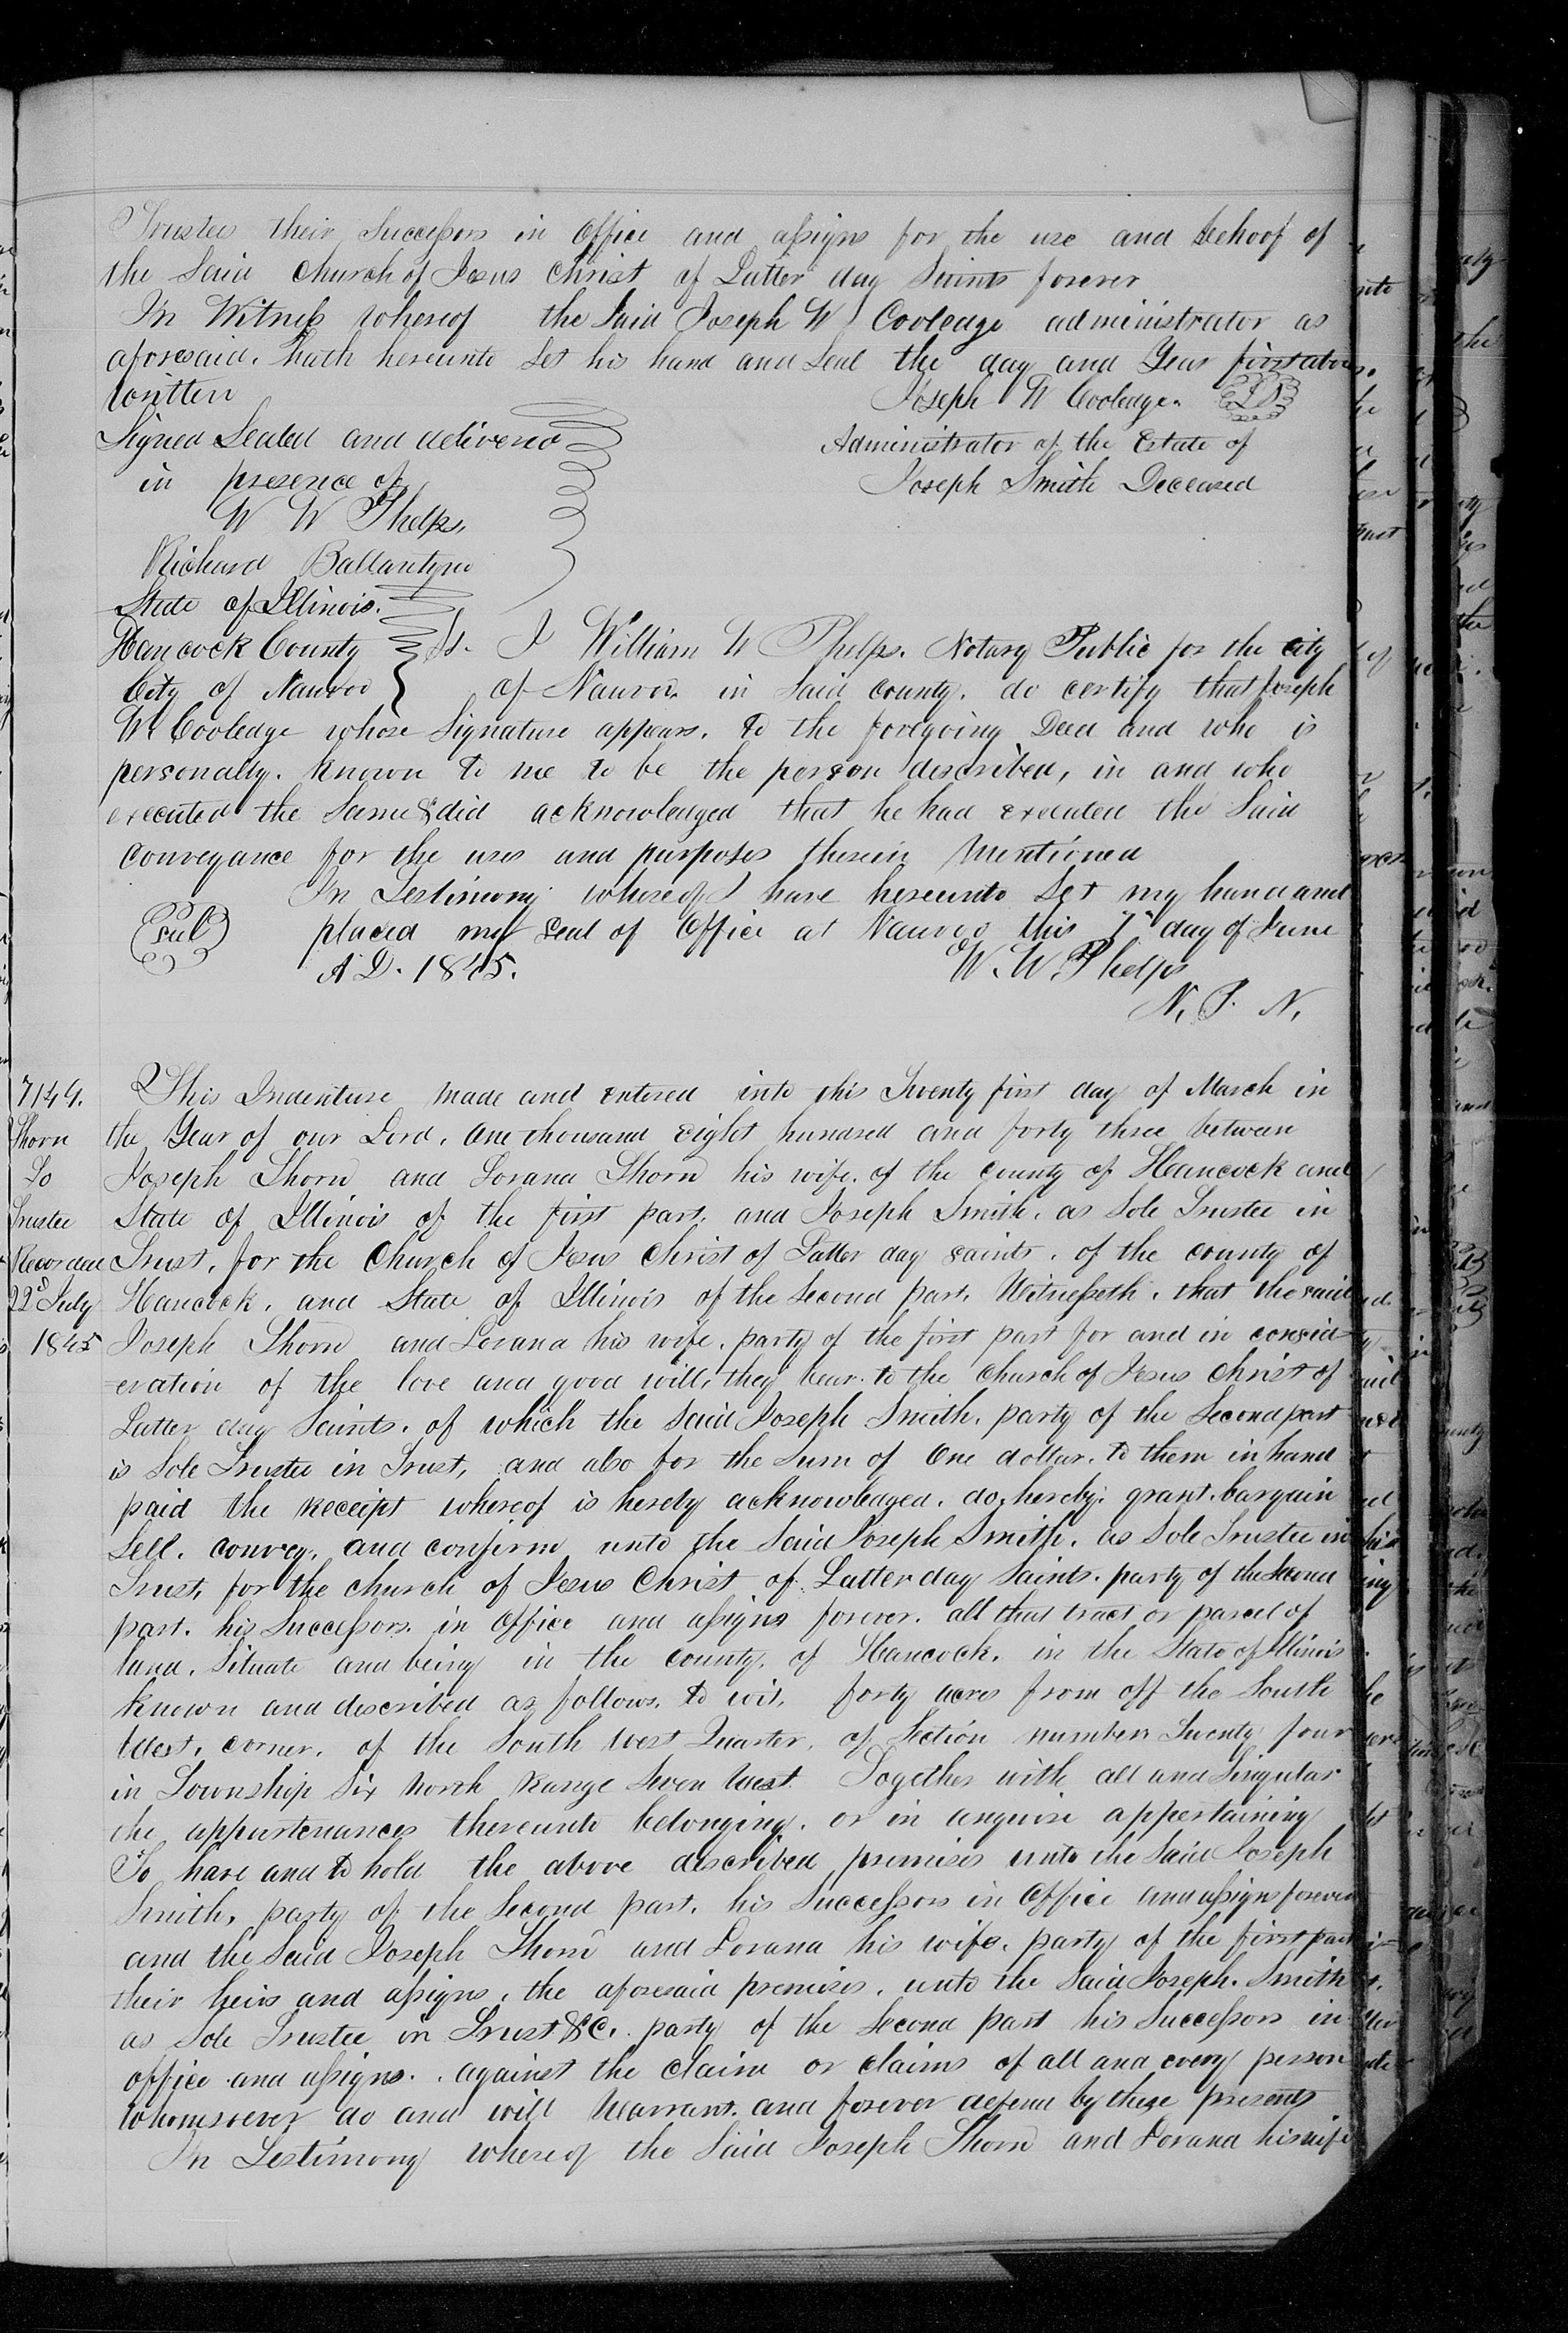 Trustee their Successors in Office and assigns for the use and behoof of
the Said Church of Jesus Christ of Latter day Saints forever
In Witness Whereof the Said Joseph W Cooledge administrator as
aforesaid. hath hereunto Set his hand and Seal the day and Year first above
written
Joseph W Cooledge. LS
Signed Sealed and delivered
Administrator of the Estate of
in presence of
Joseph Smith Deceased
W W Phelps,
Richard Ballantyne
State of Illinois.
Hancock County
City of Nauvoo
Ss. I William W Phelps. Notary Public for the city
of Nauvoo. in Said County. do certify that Joseph
W. Cooledge whose Signature appears. to the foregoing Deed and who is
personally. known to me to be the person described, in and who
executed the Same & did acknowledged that he had executed the Said
Conveyance for the uses and purposes therein Mentioned
In Testimony whereof I have hereunto Set my hand and
Seal
placed my Seal of Office at Nauvoo this 7th day of June
A D. 1845.
W. W. Phelps
N. P. N.
7144.
Thorn
To
Trustee
Recorded
22d July
1845
This Indenture Made and entered into this Twenty first day of March in
the Year of our Lord. One thousand Eight hundred and forty three between
Joseph Thorn and Lorana Thorn his wife. of the County of Hancock and
State of Illinois of the first part. and Joseph Smith. as Sole Trustee in
Trust. for the Church of Jesus Christ of Latter day Saints. of the County of
Hancock. and State of Illinois of the Second part. Witnesseth. that the said
Joseph Thorn and Lorana his wife. party of the first part for and in consid
=eration of the love and good will, they bear. to the Church of Jesus Christ of
Latter day Saints. of which the Said Joseph Smith. party of the Second part
is Sole Trustee in Trust, and also for the Sum of One dollar. to them in hand
paid the receipt whereof is hereby acknowledged. do. hereby. grant. bargain
Sell. convey. and confirm unto the Said Joseph Smith. as Sole Trustee in
Trust, for the church of Jesus Christ of Latter day Saints. party of the Second
part. his Successors. in Office and assigns forever. all that tract or parcel of
land. Situate and being in the County. of Hancock. in the State of Illinois
known and described as follows, to wit. forty acres from off the South
West. corner. of the South West Quarter. of Section number Twenty four
in Township Six North Range Seven West. Together with all and Singular
the appurtenances thereunto belonging. or in anywise appertaining
To have and to hold the above described premises unto the Said Joseph
Smith, party of the Second part. his Successors in Office and assigns forever
and the Said Joseph Thorn and Lorana his wife. party of the first part
their heirs and assigns. the aforesaid premises. unto the Said Joseph. Smith
as Sole Trustee in Trust &C. party of the Second part his Successors in
office and assigns. against the claim or claims of all and every person
whomsoever do and will Warrant. and forever defend by these presents
In Testimony whereof the Said Joseph Thorn and Lorana his wife